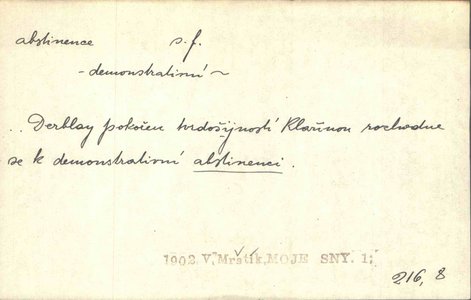 abstinence s. f.
- demonstrativní ~
.. Derblay pokořen tvrdošíjností Klařinou rozhodne
se k demonstrativní abstinenci.
1902 V. Mrštík, MOJE SNY. 1;
216, 8